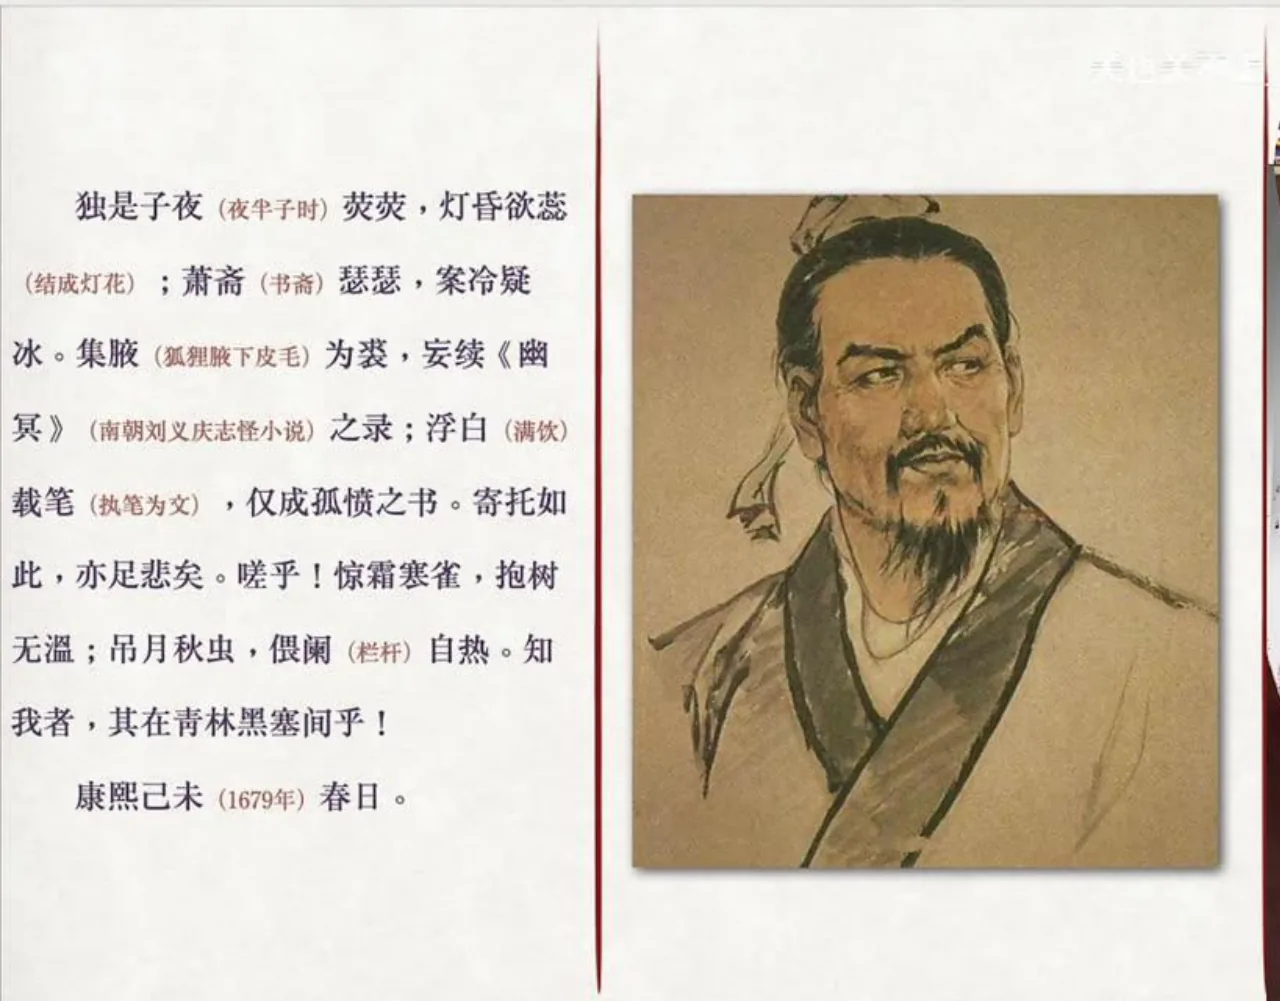 独是子夜（夜半子时）荧荧，灯昏欲蕊
（结成灯花）；萧斋（书斋）瑟瑟，案冷疑
冰。集腋（狐狸腋下皮毛）为裘，妄续《幽
冥》（南朝刘义庆志怪小说）之录；浮白（满饮）
载笔（执笔为文），仅成孤愤之书。寄托如
此，亦足悲矣。嗟乎！惊霜寒雀，抱树
无温；吊月秋虫，偎阑（栏杆）自热。知
我者，其在青林黑塞间乎！
康熙己未（1679年）春日。